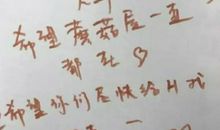 希望蘑菇屋一直
都在
希望你们尽快给H我